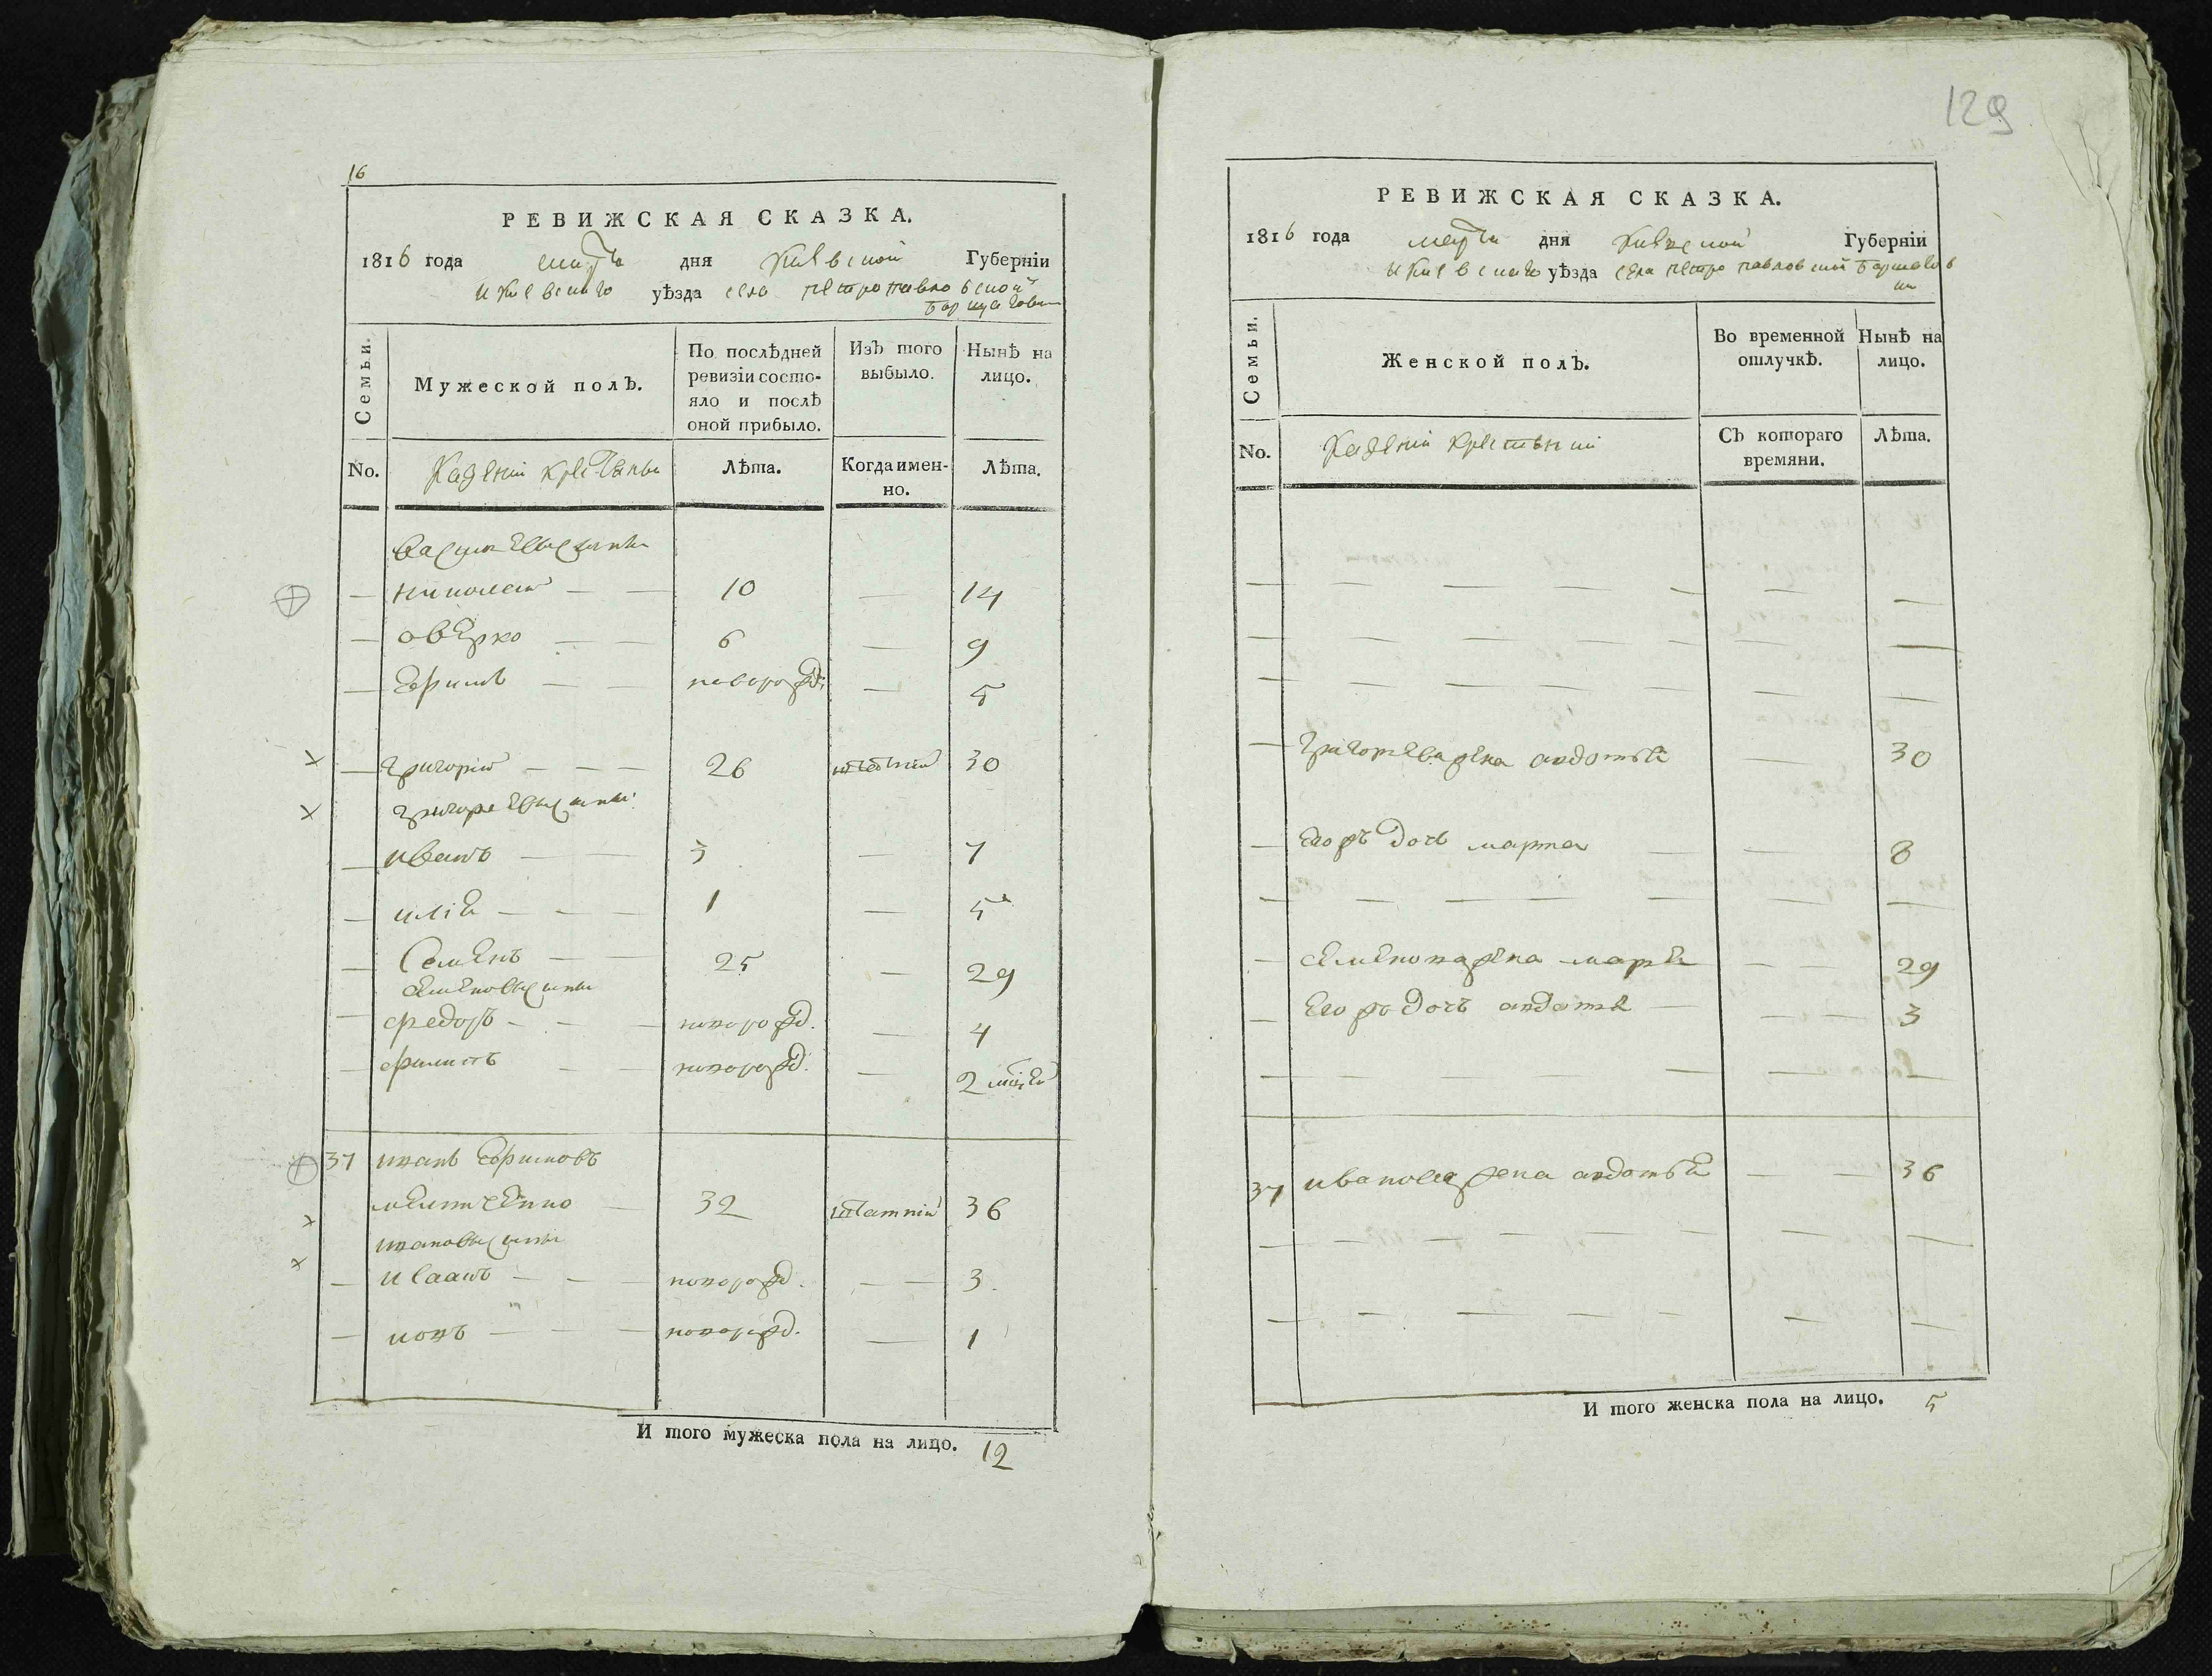 16
РЕВИЖСКАЯ СКАЗКА.
1816 года марта дня Киевской Губерніи
и Киевскаго уѣзда села петропавловской
борщаговки
Семьи.
Мужеской полъ.
По послѣдней ревизіи состояло и послѣ оной прибыло.
Изъ того выбыло.
Нынѣ на лицо.
No. Казенніи крестьяны Лѣта. Когда именно. Лѣта.
василевы сыны
— николай — — 10 — 14
— овѣрко — — 6 — 9
— Ефимъ — — новорожд: — 5
— григорій — — — 26 30
григорьевы сыны
— иванъ — — 3 — 7
— илія — — — 1 — 5
— Семенъ — — 25 — 29
семеновы сыны
— федоръ — — — новорожд. — 4
— филипъ — — новорожд. — 2 мѣсяца
37 иванъ Ефимовъ
32 штатній 36
ивановы сыны
— исаакъ — — — новорожд. — — 3.
— іовъ — — — новорожд. — 1
И того мужеска пола на лицо. 12
129
РЕВИЖСКАЯ СКАЗКА.
1816 года марта дня Киевской Губерніи
и Киевскаго уѣзда села петропавловской борщагов
ки
Семьи.
Женской полъ.
Во временной отлучкѣ.
Нынѣ на лицо.
No. Казенніи крестьянки Съ котораго времяни. Лѣта.
— григорьева жена авдотья — 30
— его ж дочь марта — — 8
— семенова жена марья — — 29
— его ж дочь авдотья — — — 3
37 иванова жена авдотья — — 36
И того женска пола на лицо. 5